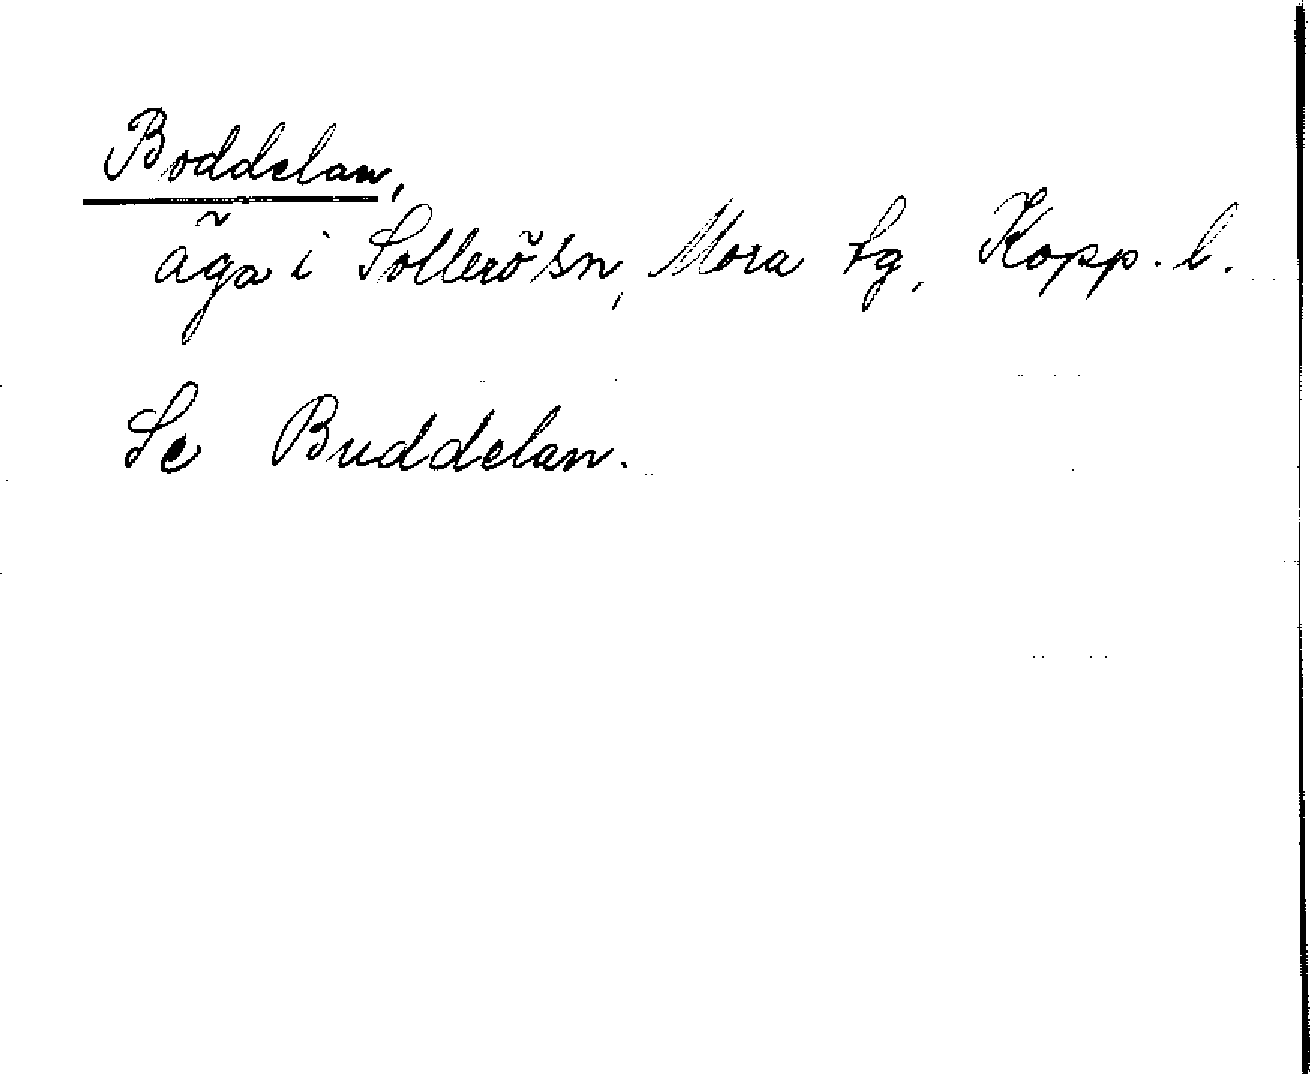 Boddelan,
äga i Sollerö sn, Mora tg, Kopp. l.
Se Buddelan.